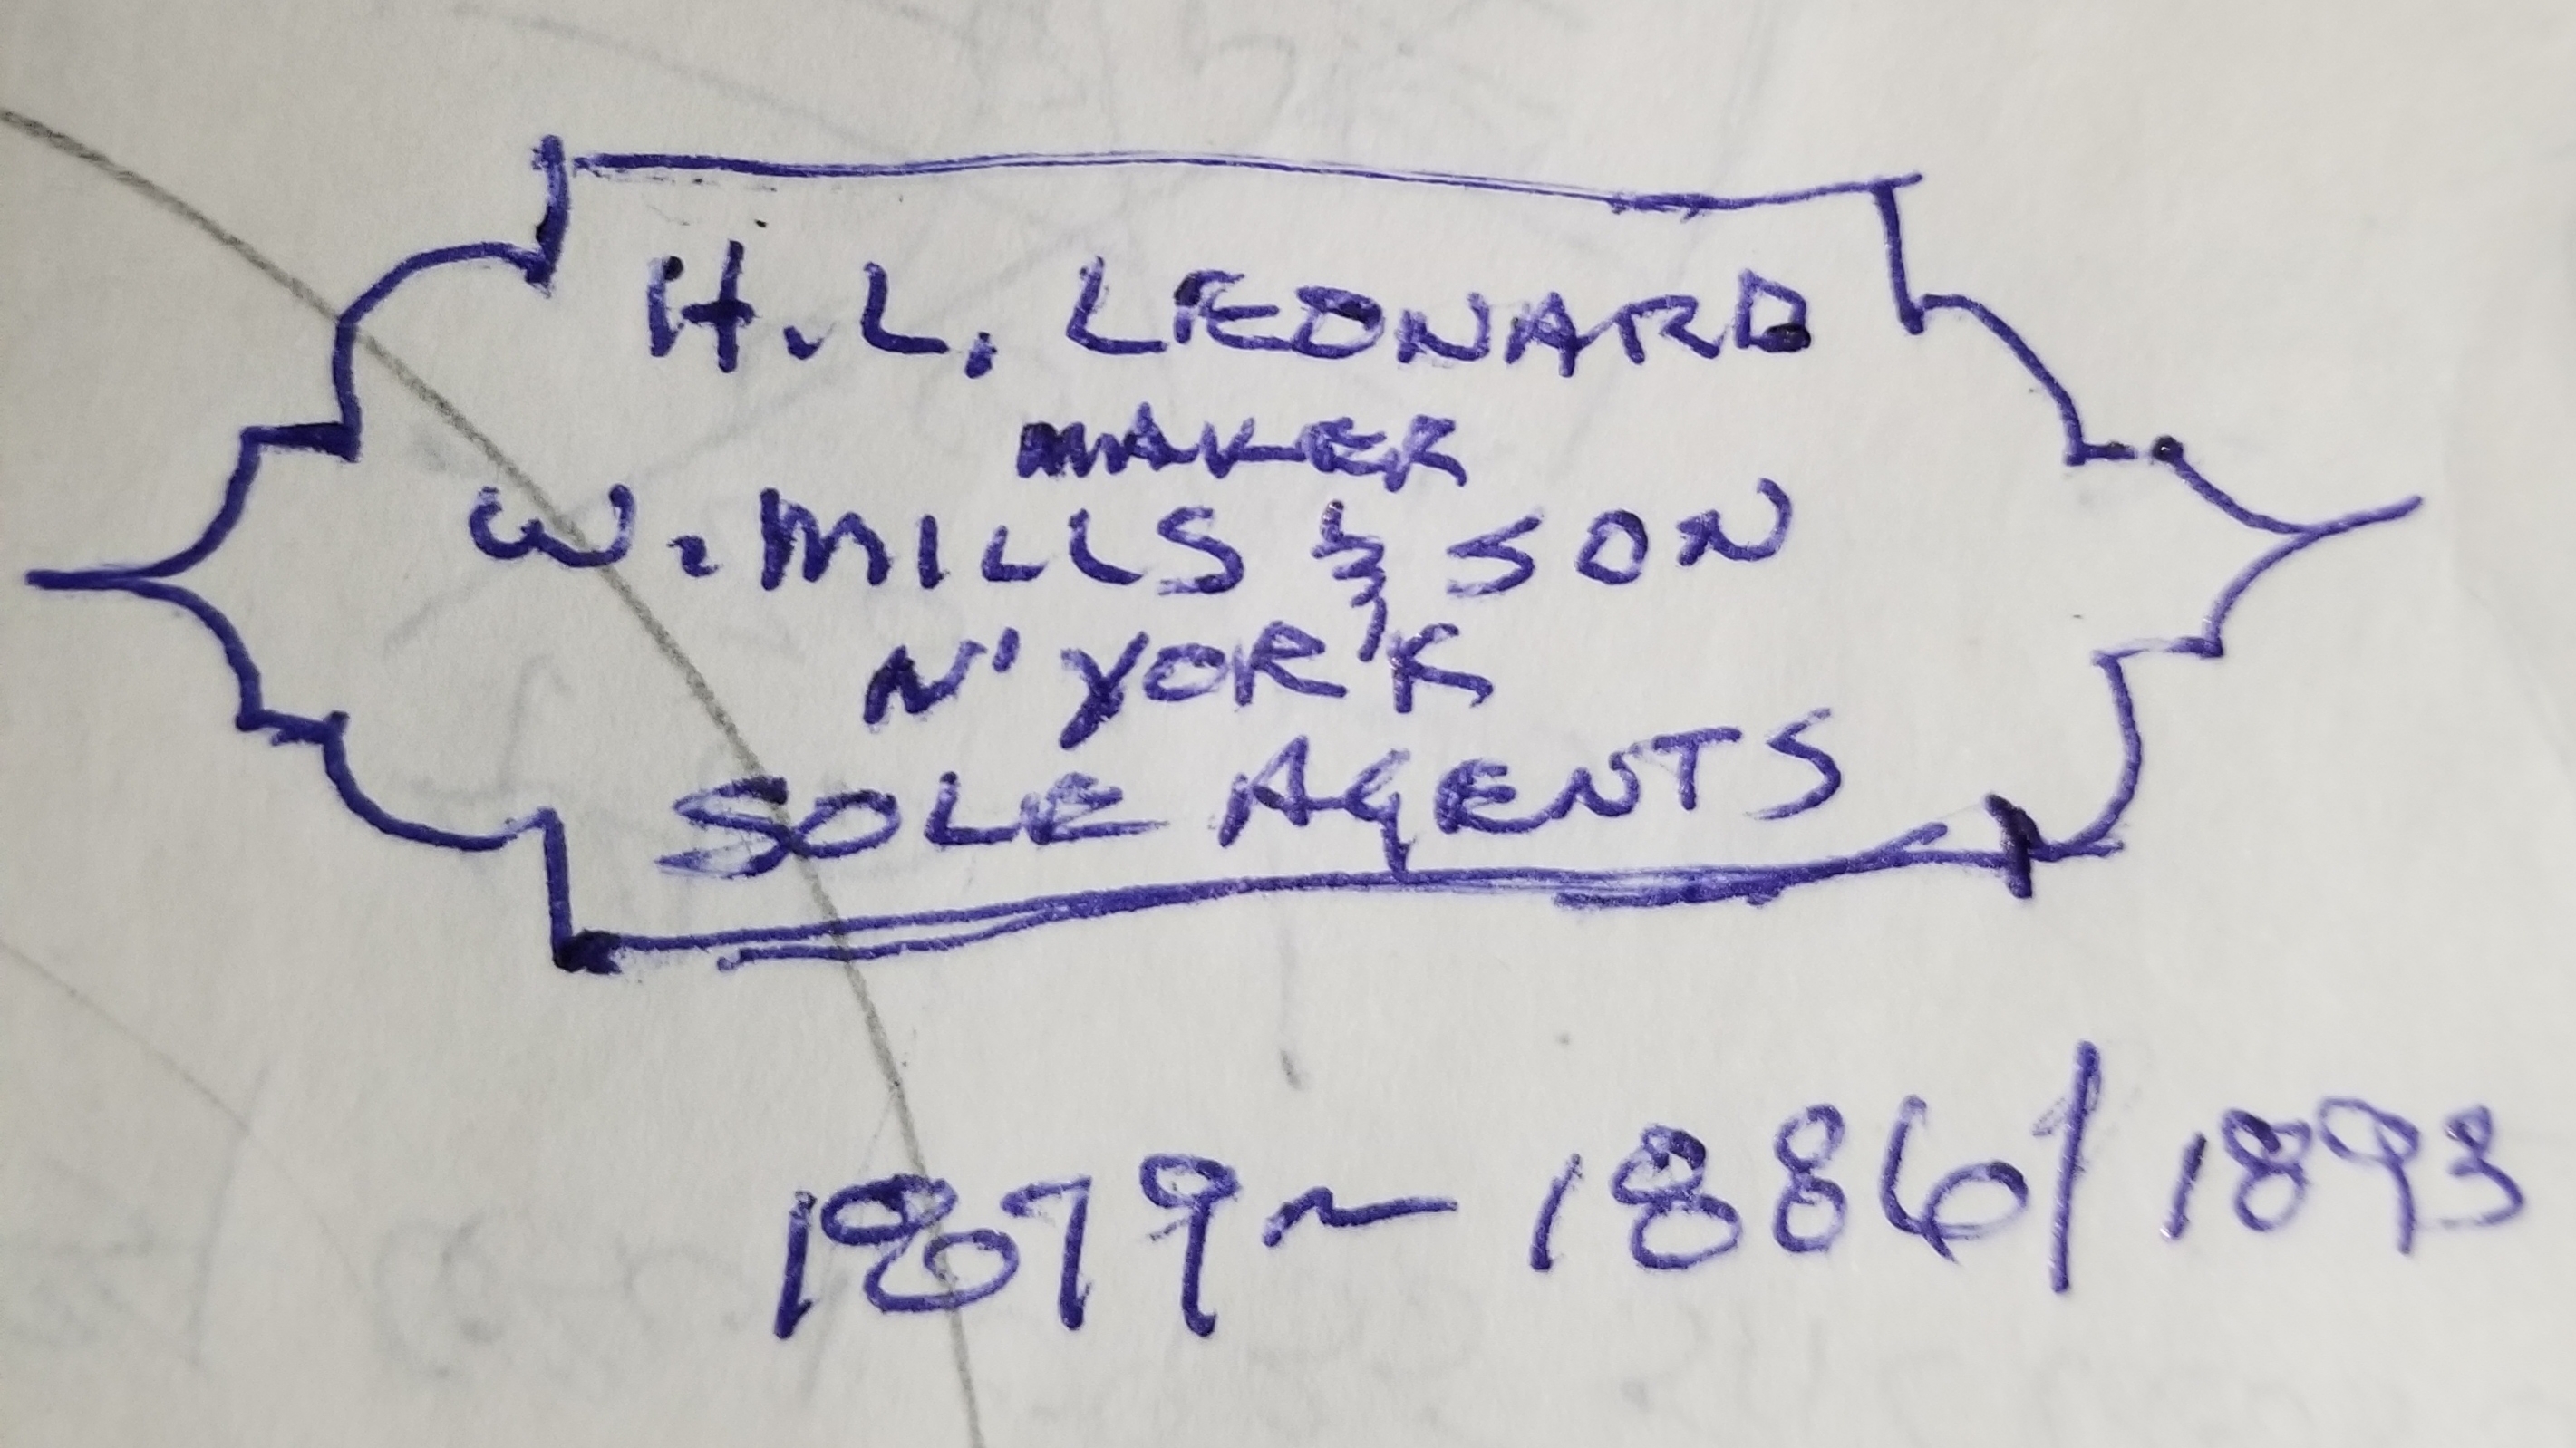 H.L. LEONARD
MAKER
W. MILLS & SON
N'YORK
SOLE AGENTS
1879~1886/1893